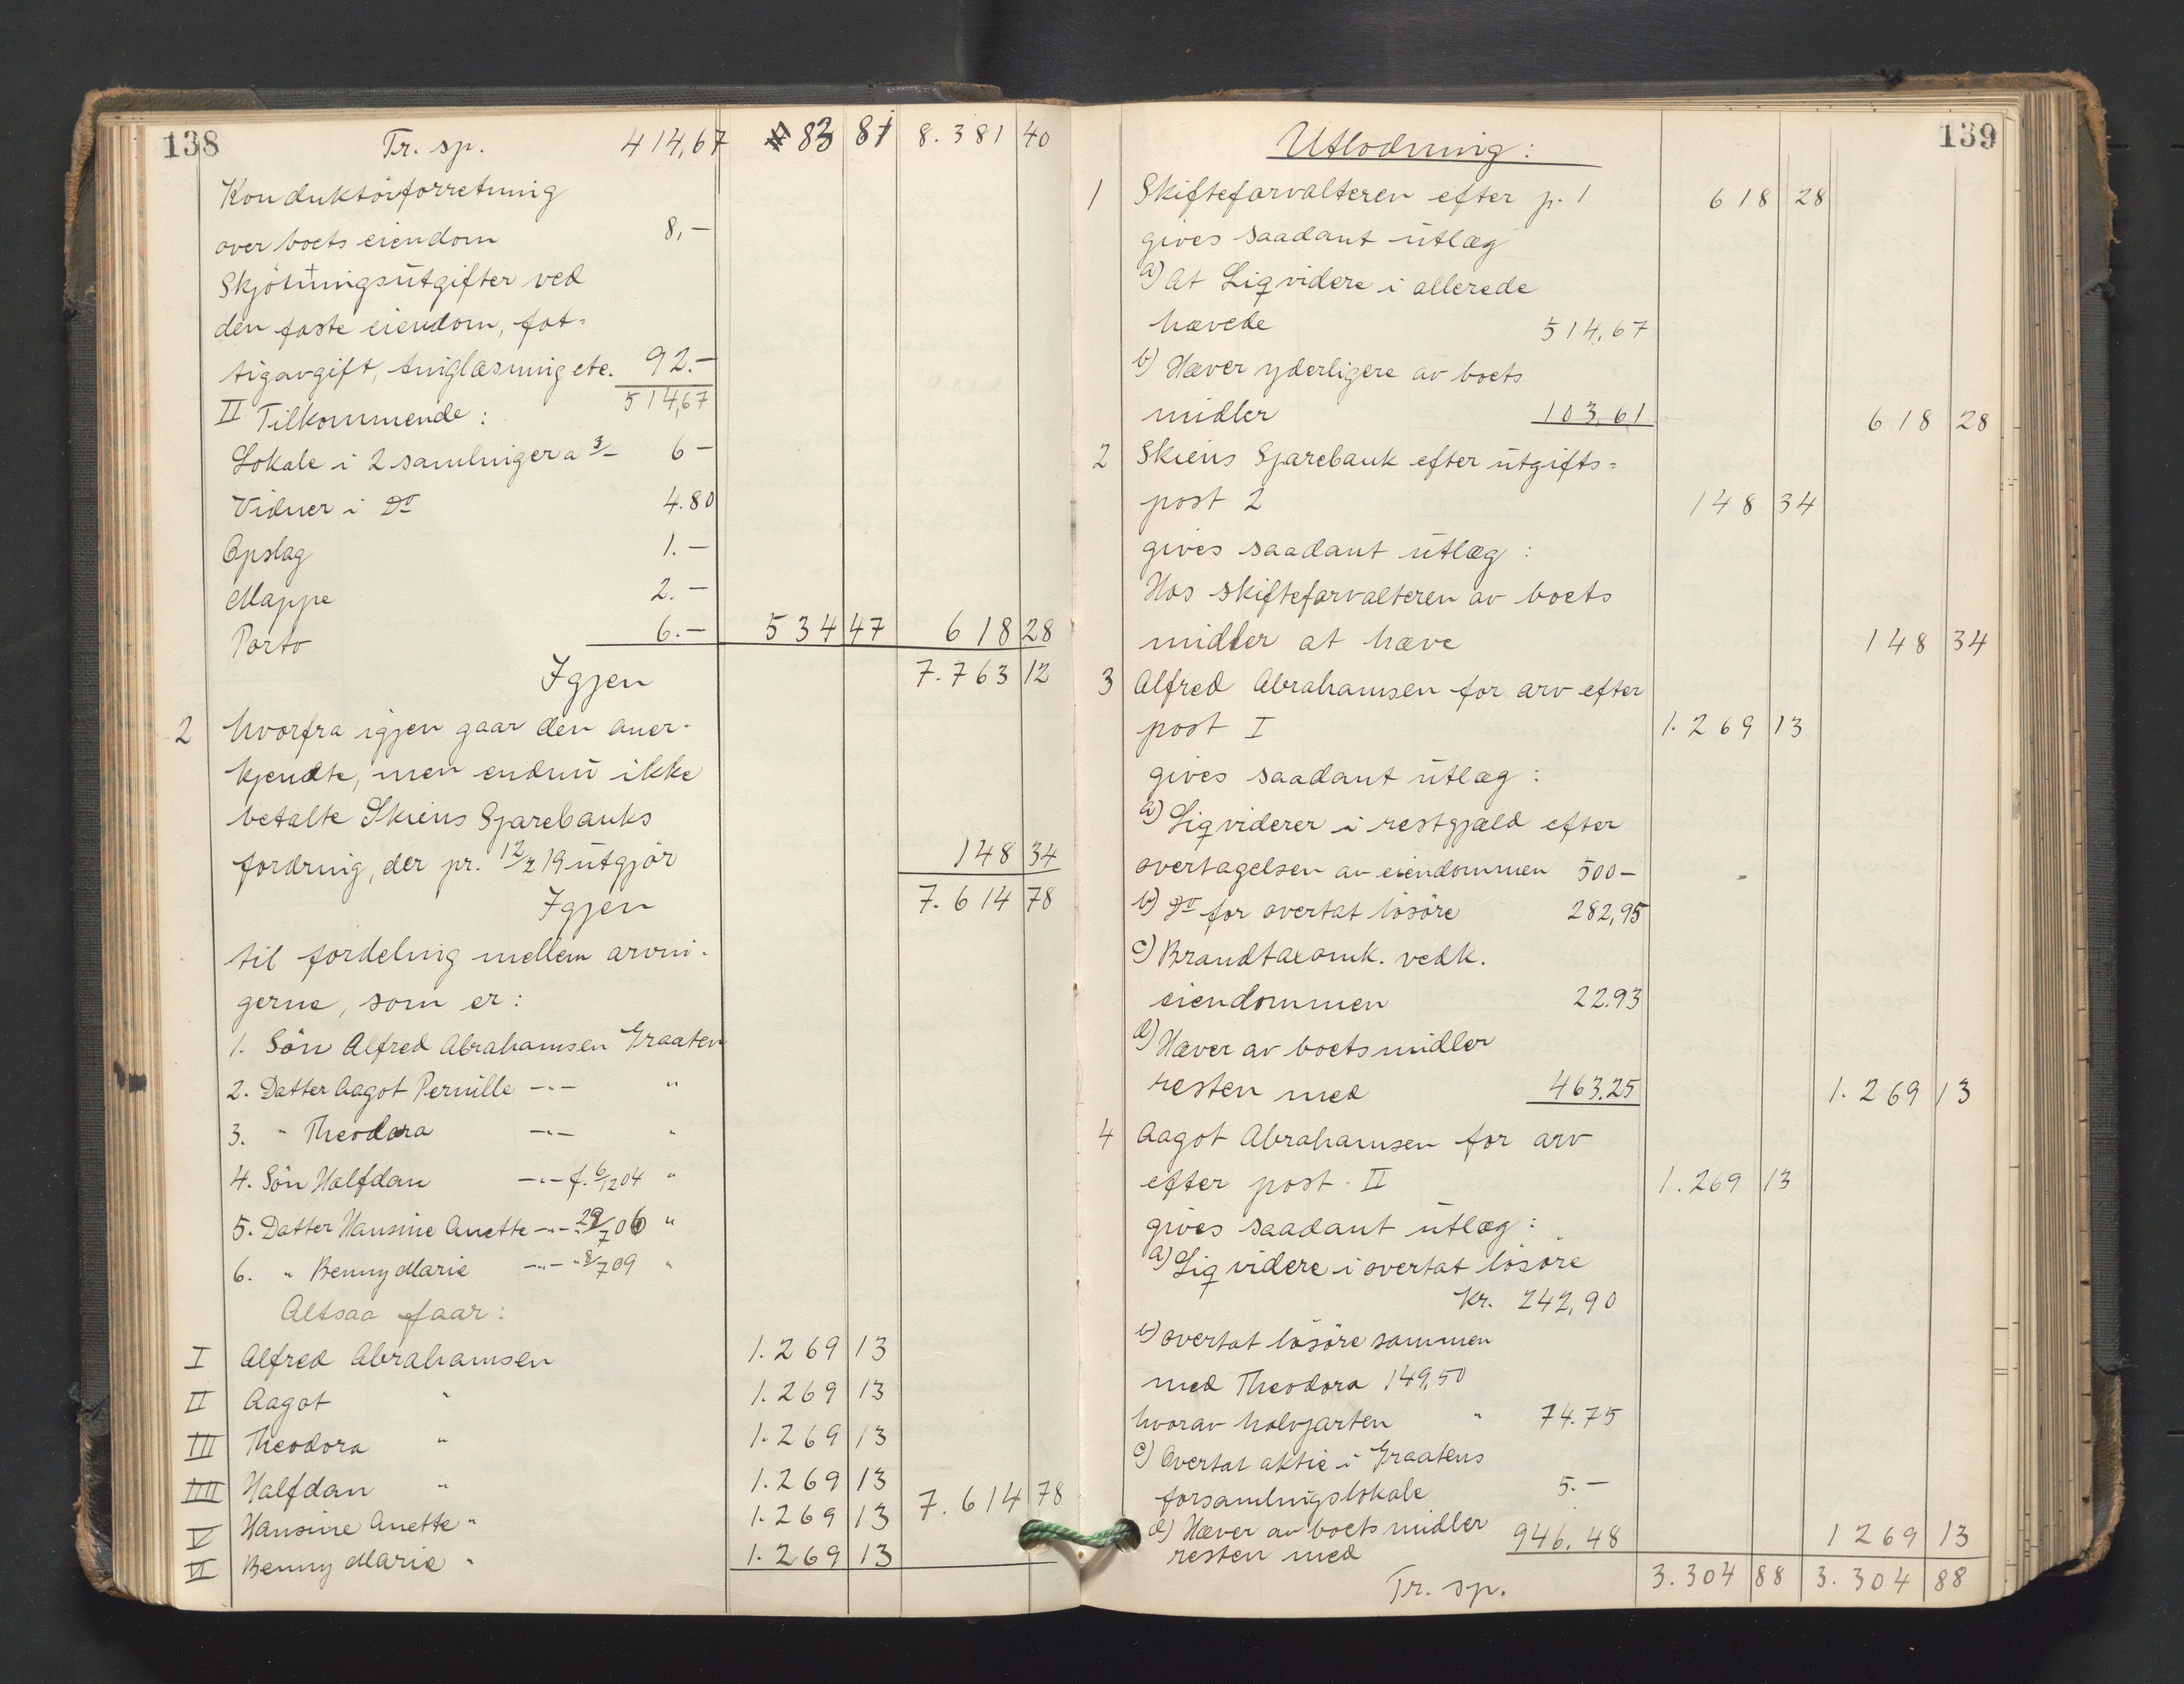 138
Tr. sp. 414,67 83 81 8.381 40
Konduktörforretning
over boets eiendom 8,-
Skjötningsutgifter ved
den faste eiendom, fat=
tigavgift, tinglæsning etc. 92.-
514,67
II Tilkommende:
Lokale i 2 samlinger a 3/- 6-
Vidner i Do 4.80
Opslag 1.-
Mappe 2.-
Porto 6.- 534 47 618 28
Igjen 7.763 12
2 hvorfra igjen gaar den aner-
kjendte, men endnu ikke
betalte Skiens Sparebanks
fordring, der pr. 12/2 19 utgjör 148 34
Igjen 7.614 78
til fordeling mellem arvin-
gerne, som er:
1. Sön Alfred Abrahamsen Graaten
2. Datter Aagot Pernille -"- "
3. " Theodora -"- "
4. Sön Halfdan -"- f. 6/12 04 "
5. Datter Hansine Anette -"- " 29/7 06 "
6. " Benny Marie -"- " 8/7 09 "
Altsaa faar:
I Alfred Abrahamsen 1.269 13
II Aagot " 1.269 13
III Theodora " 1.269 13
IIII Halfdan " 1.269 13
V Hansine Anette " 1.269 13 7.614 78
VI Benny Marie " 1.269 13
139
Utlodning:
1 Skifteforvalteren efter p. 1 618 28
gives saadant utlæg
a) At Liqvidere i allerede
hævede 514,67
b) Hæver yderligere av boets
midler 103,61 618 28
2 Skiens Sparebank efter utgifts=
post 2 148 34
gives saadant utlæg:
Hos skifteforvalteren av boets
midler at hæve 148 34
3 Alfred Abrahamsen for arv efter
post I 1.269 13
gives saadant utlæg:
a) Liqviderer i restgjæld efter
overtagelsen av eiendommen 500-
b) Do for overtat lösöre 282,95
c) Brandtaxomk. vedk.
eiendommen 22.93
d) Hæver av boets midler
resten med 463.25 1.269 13
4 Aagot Abrahamsen for arv
efter post II 1.269 13
gives saadant utlæg:
a) Liqvidere i overtat lösöre
Kr. 242,90
b) overtat lösöre sammen
med Theodora 149,50
hvorav halvparten " 74.75
c) Overtat aktie i Graatens
forsamlingslokale 5.-
d) Hæver av boets midler
resten med 946.48 1269 13
Tr. sp. 3.304 88 3.304 88